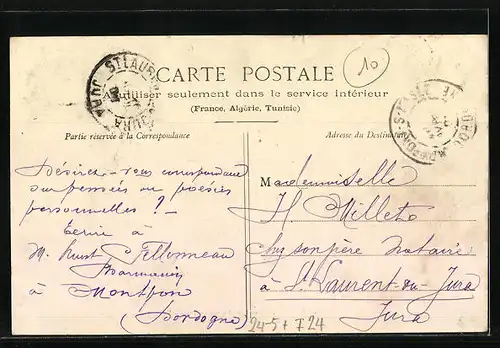 10
CARTE POSTALE
A utiliser seulement dans le service intérieur
(France, Algérie, Tunisie)
Partie réservée à la Correspondance
Adresse du Destinataire
ST LAUR
JURA
Désirez-vous correspondance
sur pensées ou poésies
personnelles ? -
Ecrire à
M. Fellonneau
à Montpon
(Dordogne)
Mademoiselle
H Millet
chez son père Notaire
à St Laurent-du-Jura
Jura
245 + T24